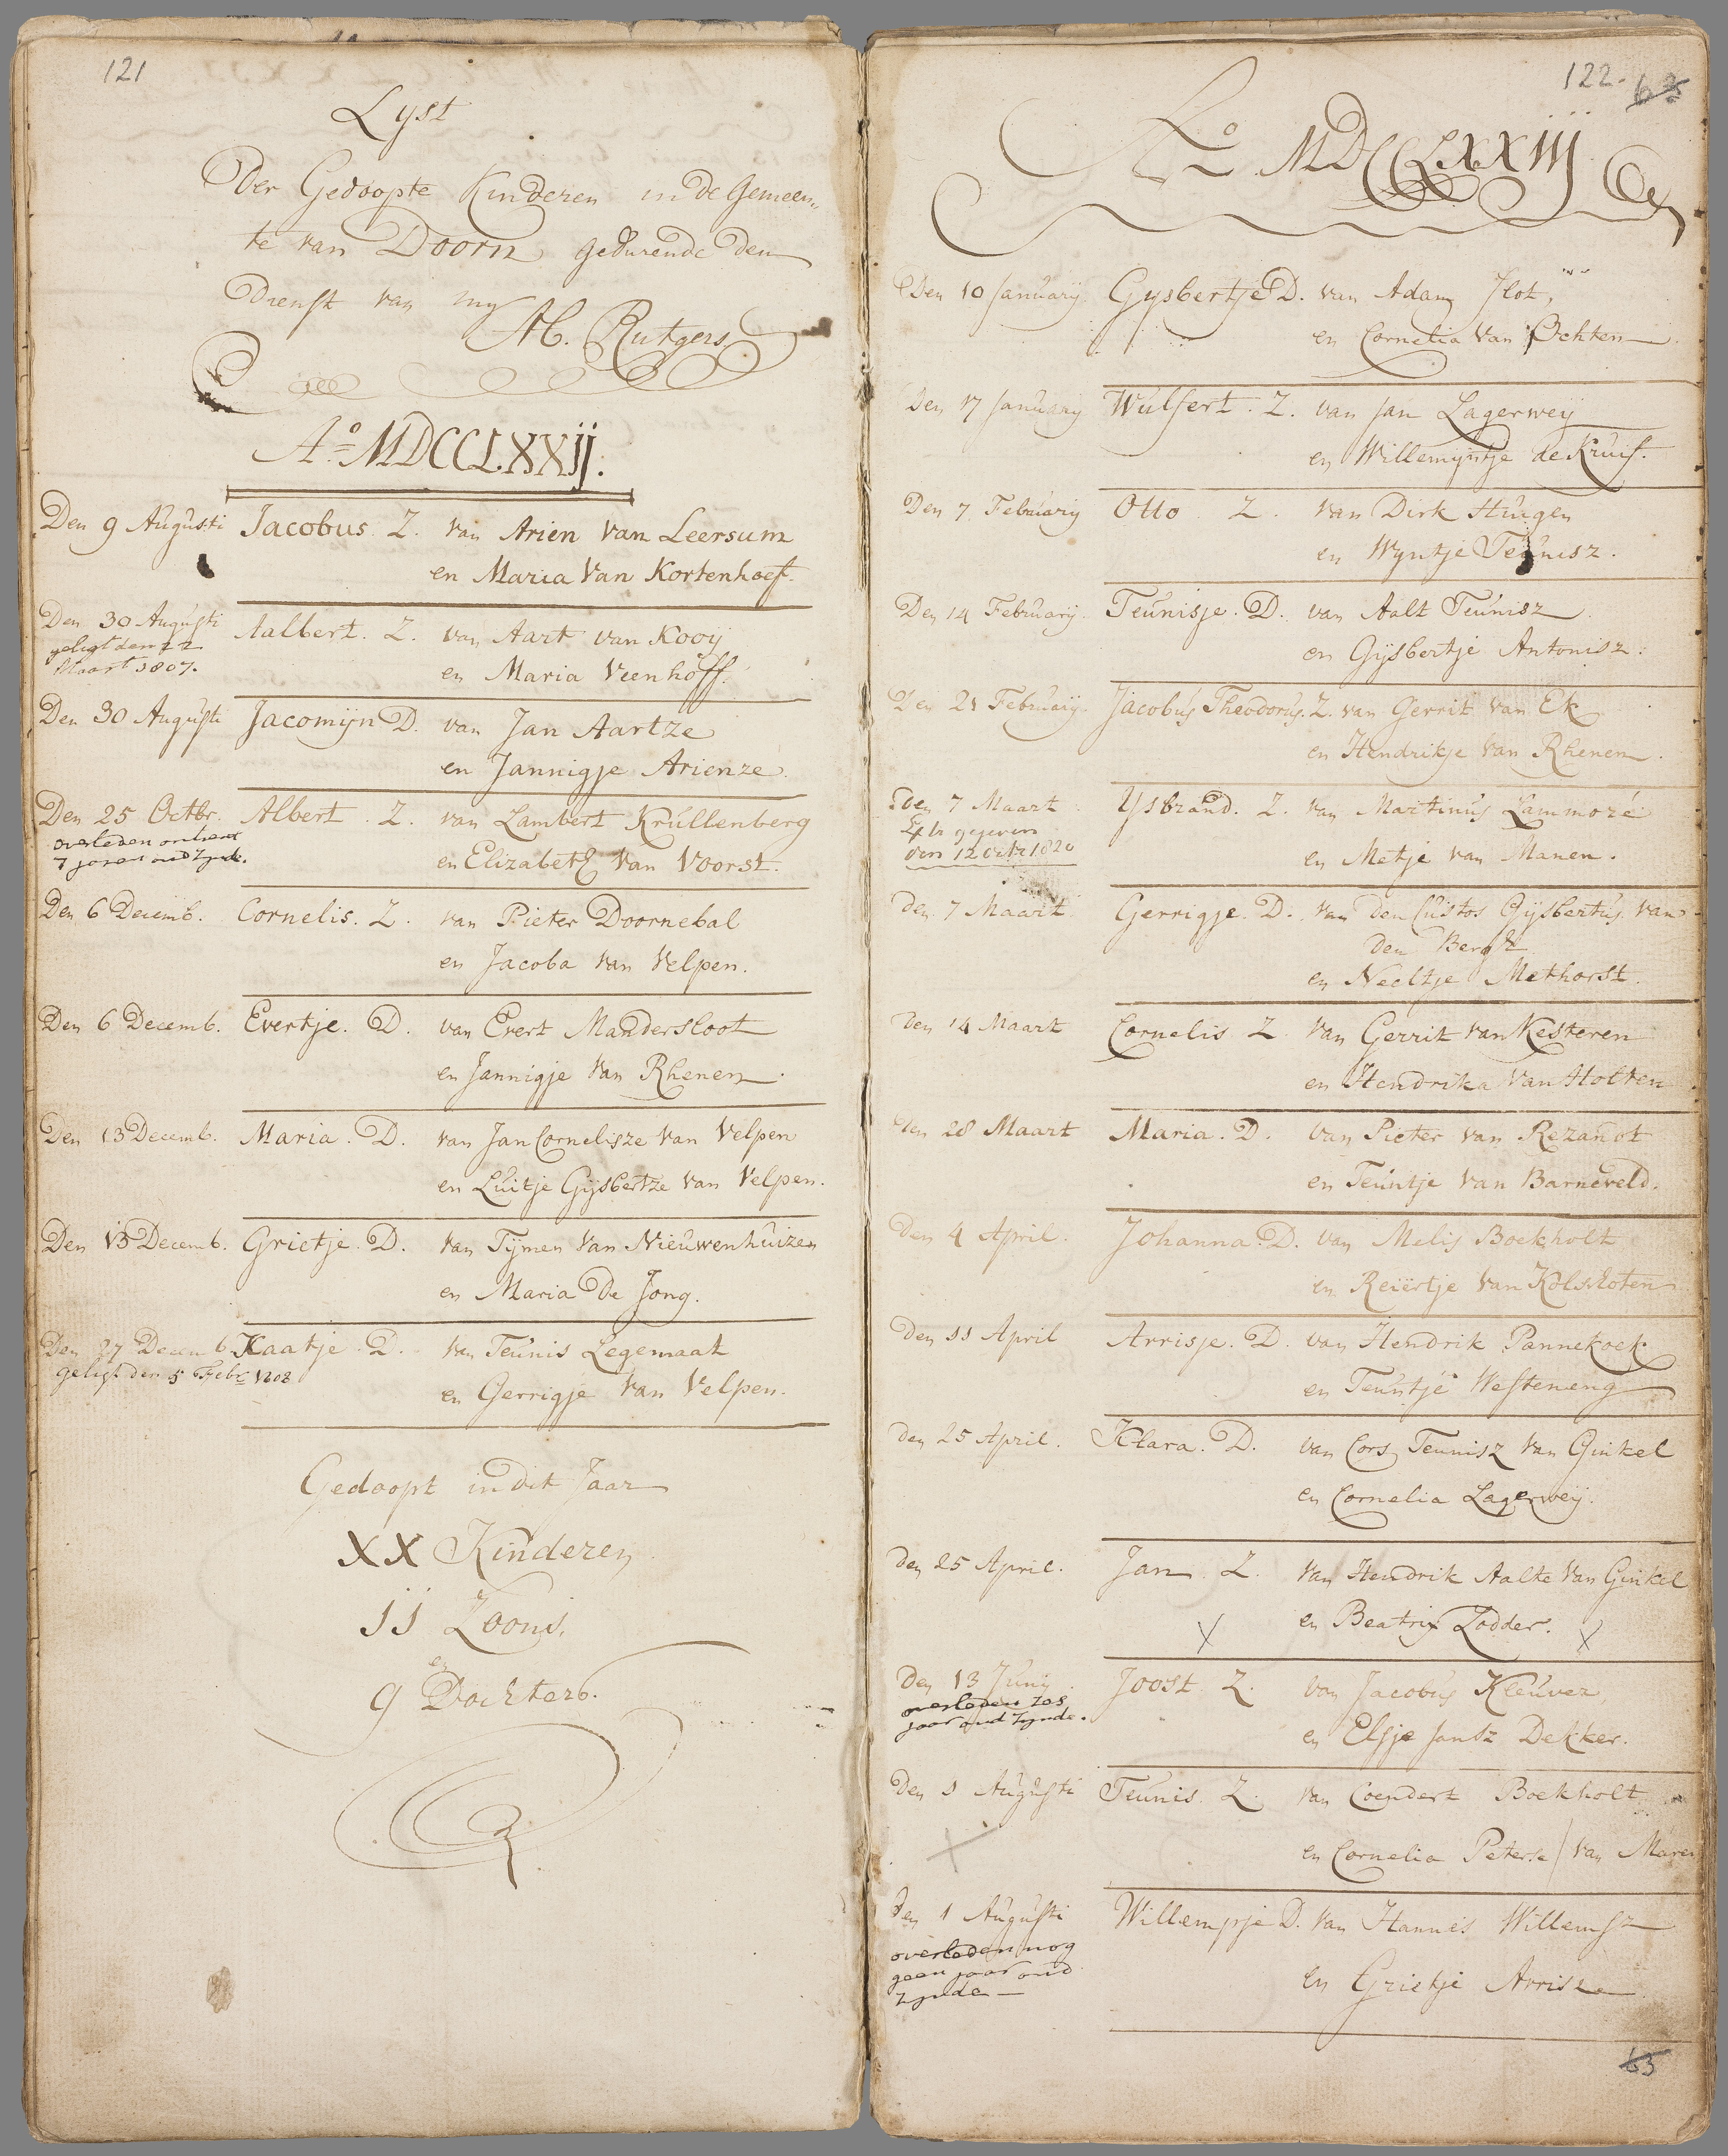 121
Lyst
Der Gedoopte Kinderen in de Gemeen„
te van Doorn gedurende den
Dienst van my
Ab. Rutgers.
Ao MDCCLXXij.
Den 9 Augusti Jacobus. Z. van Arien van Leersum
en Maria van Kortenhoef.
Den 30 Augusti Aalbert. Z. van Aart van Kooij
geligt den 22
Maart 1807.
en Maria Veenhoff.
Den 30 Augusti Jacomijn D. van Jan Aartze
en Jannigje Arienze.
Den 25 Octbr. Albert. Z. van Lambert Krullenberg
overleden omtrent
7 jaren oud zynde.
en Elizabeth van Voorst.
Den 6 Decemb. Cornelis. Z. van Pieter Doornebal
en Jacoba van Velpen.
Den 6 Decemb. Evertje. D. van Evert Mandersloot
en Jannigje van Rhenen.
Den 13 Decemb. Maria. D. van Jan Cornelisze van Velpen
en Luitje Gijsbertze van Velpen.
Den 13 Decemb. Grietje. D. van Tijmen van Nieuwenhuizen
en Maria De Jong.
Den 27 Decemb. Kaatje. D. van Teunis Legemaat
geligt den 5 Febr. 1808
en Gerrigje van Velpen.
Gedoopt in dit Jaar
XX Kinderen
11 Zoons.
en
9 Dochters.
122.
Ao MDCCLXXiij
Den 10 January Gysbertje D. van Adam Slot,
en Cornelia van Ochten
Den 17 January Wulfert. Z. van Jan Lagerweij
en Willemijntje de Kruif.
Den 7 February Otto Z. van Dirk Huigen
en Wyntje Teunisz.
Den 14 February. Teunisje. D. van Aalt Teunisz
en Gijsbertje Antonisz.
Den 21 February. Jacobus Theodorus. Z. van Gerrit van Ek
en Hendrikje van Rhenen.
Den 7 Maart Ysbrand. Z. van Martinus Lammoré
Extr gegeven
den 12 octr 1820
en Metje van Manen.
Den 7 Maart Gerrigje. D. van den Custos Gijsbertus van
den Bergh
en Neeltje Methorst.
Den 14 Maart Cornelis Z. van Gerrit van Kesteren
en Hendrika van Holten
Den 28 Maart Maria. D. van Pieter van Rezandt
en Teuntje van Barneveld.
Den 4 April. Johanna. D. van Melis Boekholt
en Reiërtje van Kolvschoten
Den 11 April Arrisje. D. van Hendrik Pannekoek
en Teuntje Westeneng
Den 25 April. Klara. D. van Cors Teunisz van Ginkel
en Cornelia Lagerweij.
Den 25 April. Jan. Z. van Hendrik Aalte van Ginkel
en Beatrix Lodder.
Den 13 Juny Joost. Z. van Jacobus Kleuver
overleden zes
jaar oud zynde.
en Elsje Jansz Dekker.
Den 1 Augusti Teunis. Z. van Coendert Boekholt
en Cornelia Peterse / van Maren
Den 1 Augusti Willempje D. van Hannes Willemsz
overleden nog
geen jaar oud
zynde
en Grietje Arrisz
63